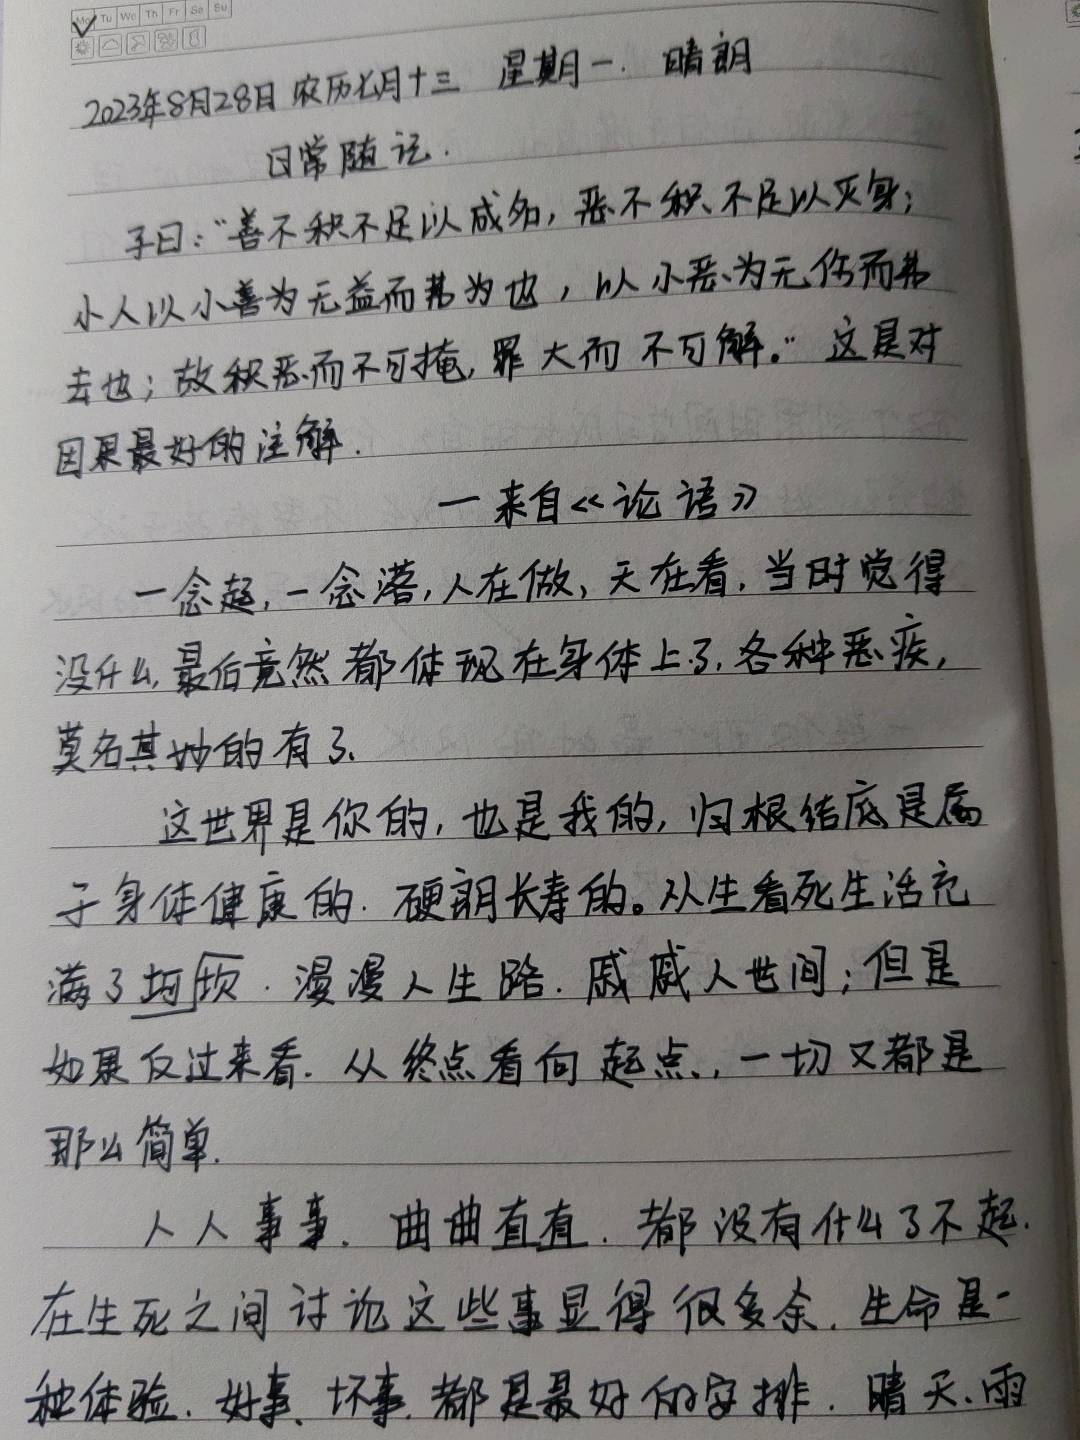 Mo Tu We Th Fr Sa Su
2023年8月28日 农历七月十三 星期一. 晴朗
日常随记.
子曰：“善不积不足以成名，恶不积、不足以灭身；
小人以小善为无益而弗为也，以小恶为无伤而弗
去也；故积恶而不可掩，罪大而不可解。”这是对
因果最好的注解.
一来自《论语》
一念起，一念落，人在做，天在看，当时觉得
没什么，最后竟然都体现在身体上了，各种恶疾，
莫名其妙的有了、
这世界是你的，也是我的，归根结底是属
于身体健康的. 硬朗长寿的。从生看死生活充
满了坷坎. 漫漫人生路. 戚戚人世间；但是
如果反过来看. 从终点看向起点，一切又都是
那么简单.
人人事事. 曲曲直直. 都没有什么了不起.
在生死之间讨论这些事显得很多余. 生命是一
种体验. 好事、坏事. 都是最好的安排. 晴天、雨